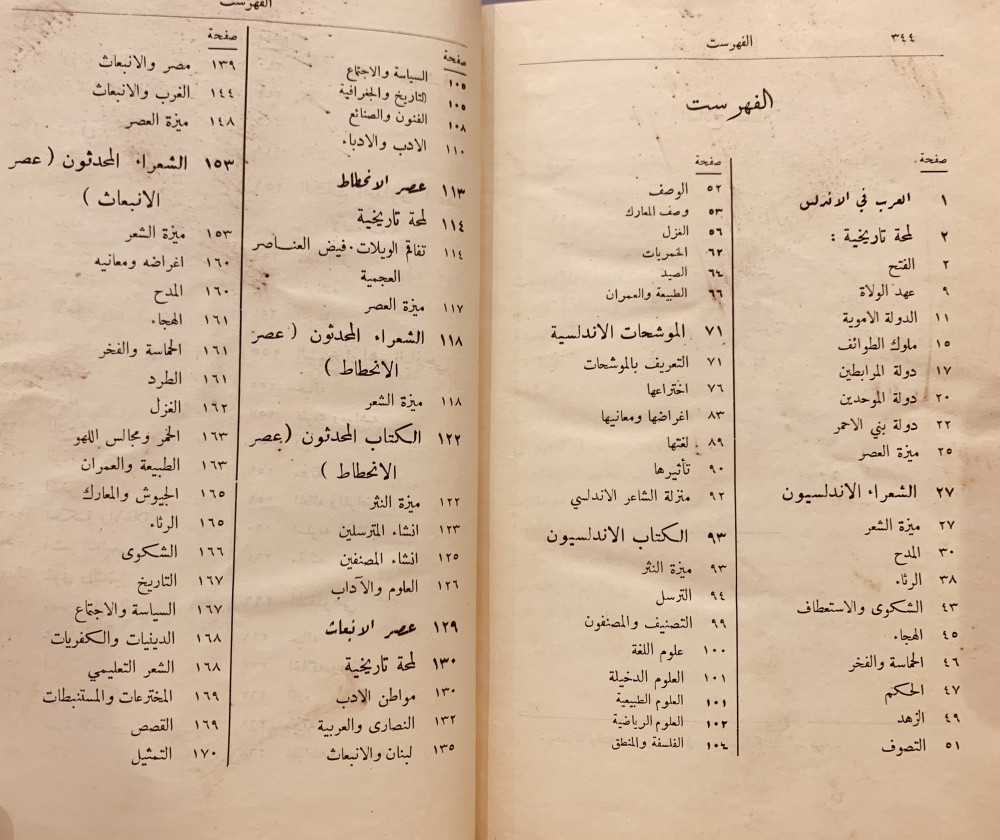 ٣٤٤ الفهرست
الفهرست
صفحة
١ العرب في الاندلس
٢ لمحة تاريخية :
٢ الفتح
٩ عهد الولاة
١١ الدولة الاموية
١٥ ملوك الطوائف
١٧ دولة المرابطين
٢٠ دولة الموحدين
٢٢ دولة بني الاحمر
٢٥ ميزة العصر
٢٧ الشعراء الاندلسيون
٢٧ ميزة الشعر
٣٠ المدح
٣٨ الرثاء
٤٣ الشكوى والاستعطاف
٤٥ الهجاء
٤٦ الحماسة والفخر
٤٧ الحكم
٤٩ الزهد
٥١ التصوف
صفحة
٥٢ الوصف
٥٣ وصف المعارك
٥٦ الغزل
٦٢ الخمريات
٦٤ الصيد
٦٦ الطبيعة والعمران
٧١ الموشحات الاندلسية
٧١ التعريف بالموشحات
٧٦ اختراعها
٨٣ اغراضها ومعانيها
٨٩ لغتها
٩٠ تأثيرها
٩٢ منزلة الشاعر الاندلسي
٩٣ الكتاب الاندلسيون
٩٣ ميزة النثر
٩٤ الترسل
٩٩ التصنيف والمصنفون
١٠٠ علوم اللغة
١٠١ العلوم الدخيلة
١٠١ العلوم الطبيعية
١٠٢ العلوم الرياضية
١٠٤ الفلسفة والمنطق
الفهرست
صفحة
١٠٥ السياسة والاجتماع
١٠٥ التاريخ والجغرافية
١٠٨ الفنون والصنائع
١١٠ الادب والادباء
١١٣ عصر الانحطاط
١١٤ لمحة تاريخية
١١٤ تفاقم الويلات.فيض العناصر
العجمية
١١٧ ميزة العصر
١١٨ الشعراء المحدثون ( عصر
الانحطاط )
١١٨ ميزة الشعر
١٢٢ الكتاب المحدثون (عصر
الانحطاط )
١٢٢ ميزة النثر
١٢٣ انشاء المترسلين
١٢٥ انشاء المصنفين
١٢٦ العلوم والآداب
١٢٩ عصر الانبعاث
١٣٠ لمحة تاريخية
١٣٠ مواطن الادب
١٣٢ النصارى والعربية
١٣٥ لبنان والانبعاث
صفحة
١٣٩ مصر والانبعاث
١٤٤ الغرب والانبعاث
١٤٨ ميزة العصر
١٥٣ الشعراء المحدثون ( عصر
الانبعاث )
١٥٣ ميزة الشعر
١٦٠ اغراضه ومعانيه
١٦٠ المدح
١٦١ الهجاء
١٦١ الحماسة والفخر
١٦١ الطرد
١٦٢ الغزل
١٦٣ الخمر ومجالس اللهو
١٦٣ الطبيعة والعمران
١٦٥ الجيوش والمعارك
١٦٥ الرثاء
١٦٦ الشكوى
١٦٧ التاريخ
١٦٧ السياسة والاجتماع
١٦٨ الدينيات والكفريات
١٦٨ الشعر التعليمي
١٦٩ المخترعات والمستنبطات
١٦٩ القصص
١٧٠ التمثيل